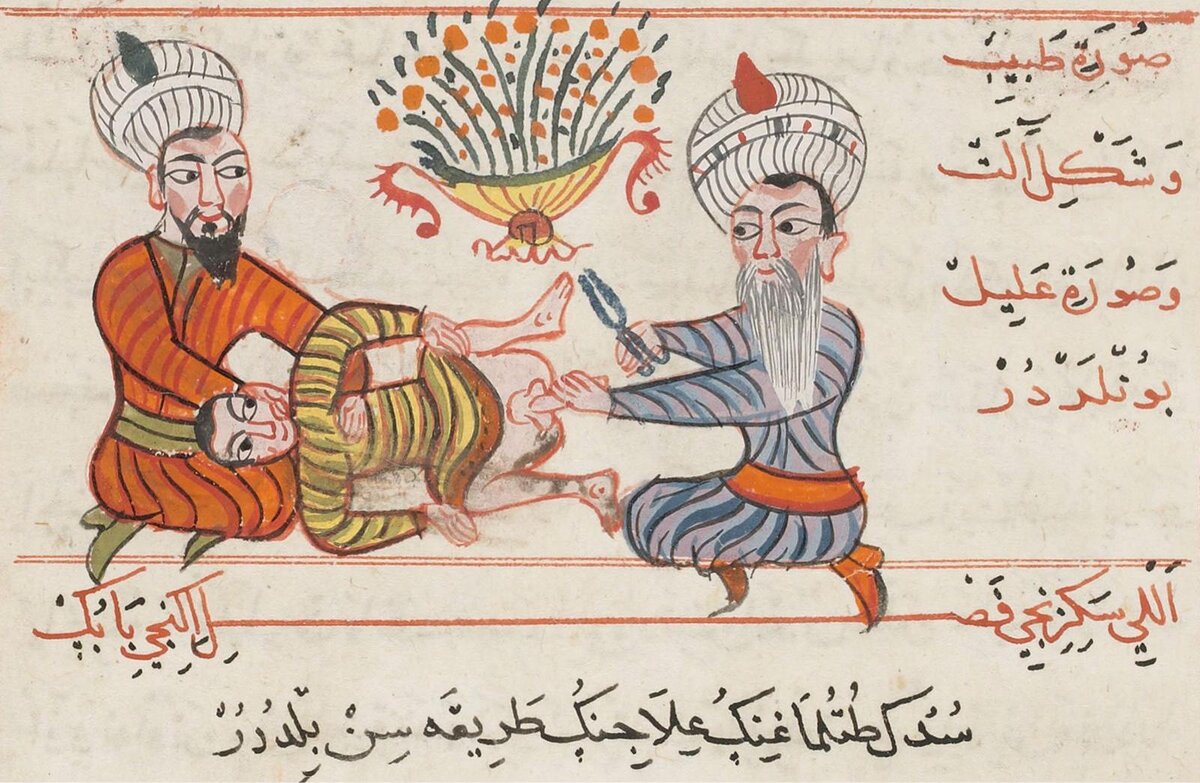 صُورَةِ طَبِيبْ
وَشَكْلِ آلَتْ
وَصُورَةِ عَلِيلْ
بُونْلَرْدُرْ
اَللِّي سَكِزِنْجِي فَصْلِ اِكِنْجِي بَابُكْ
سِدُكْ طُتُلْمَاغِنُكْ عِلَاجِنُكْ طَرِيقَه سِنْ بِلْدُرُرْ